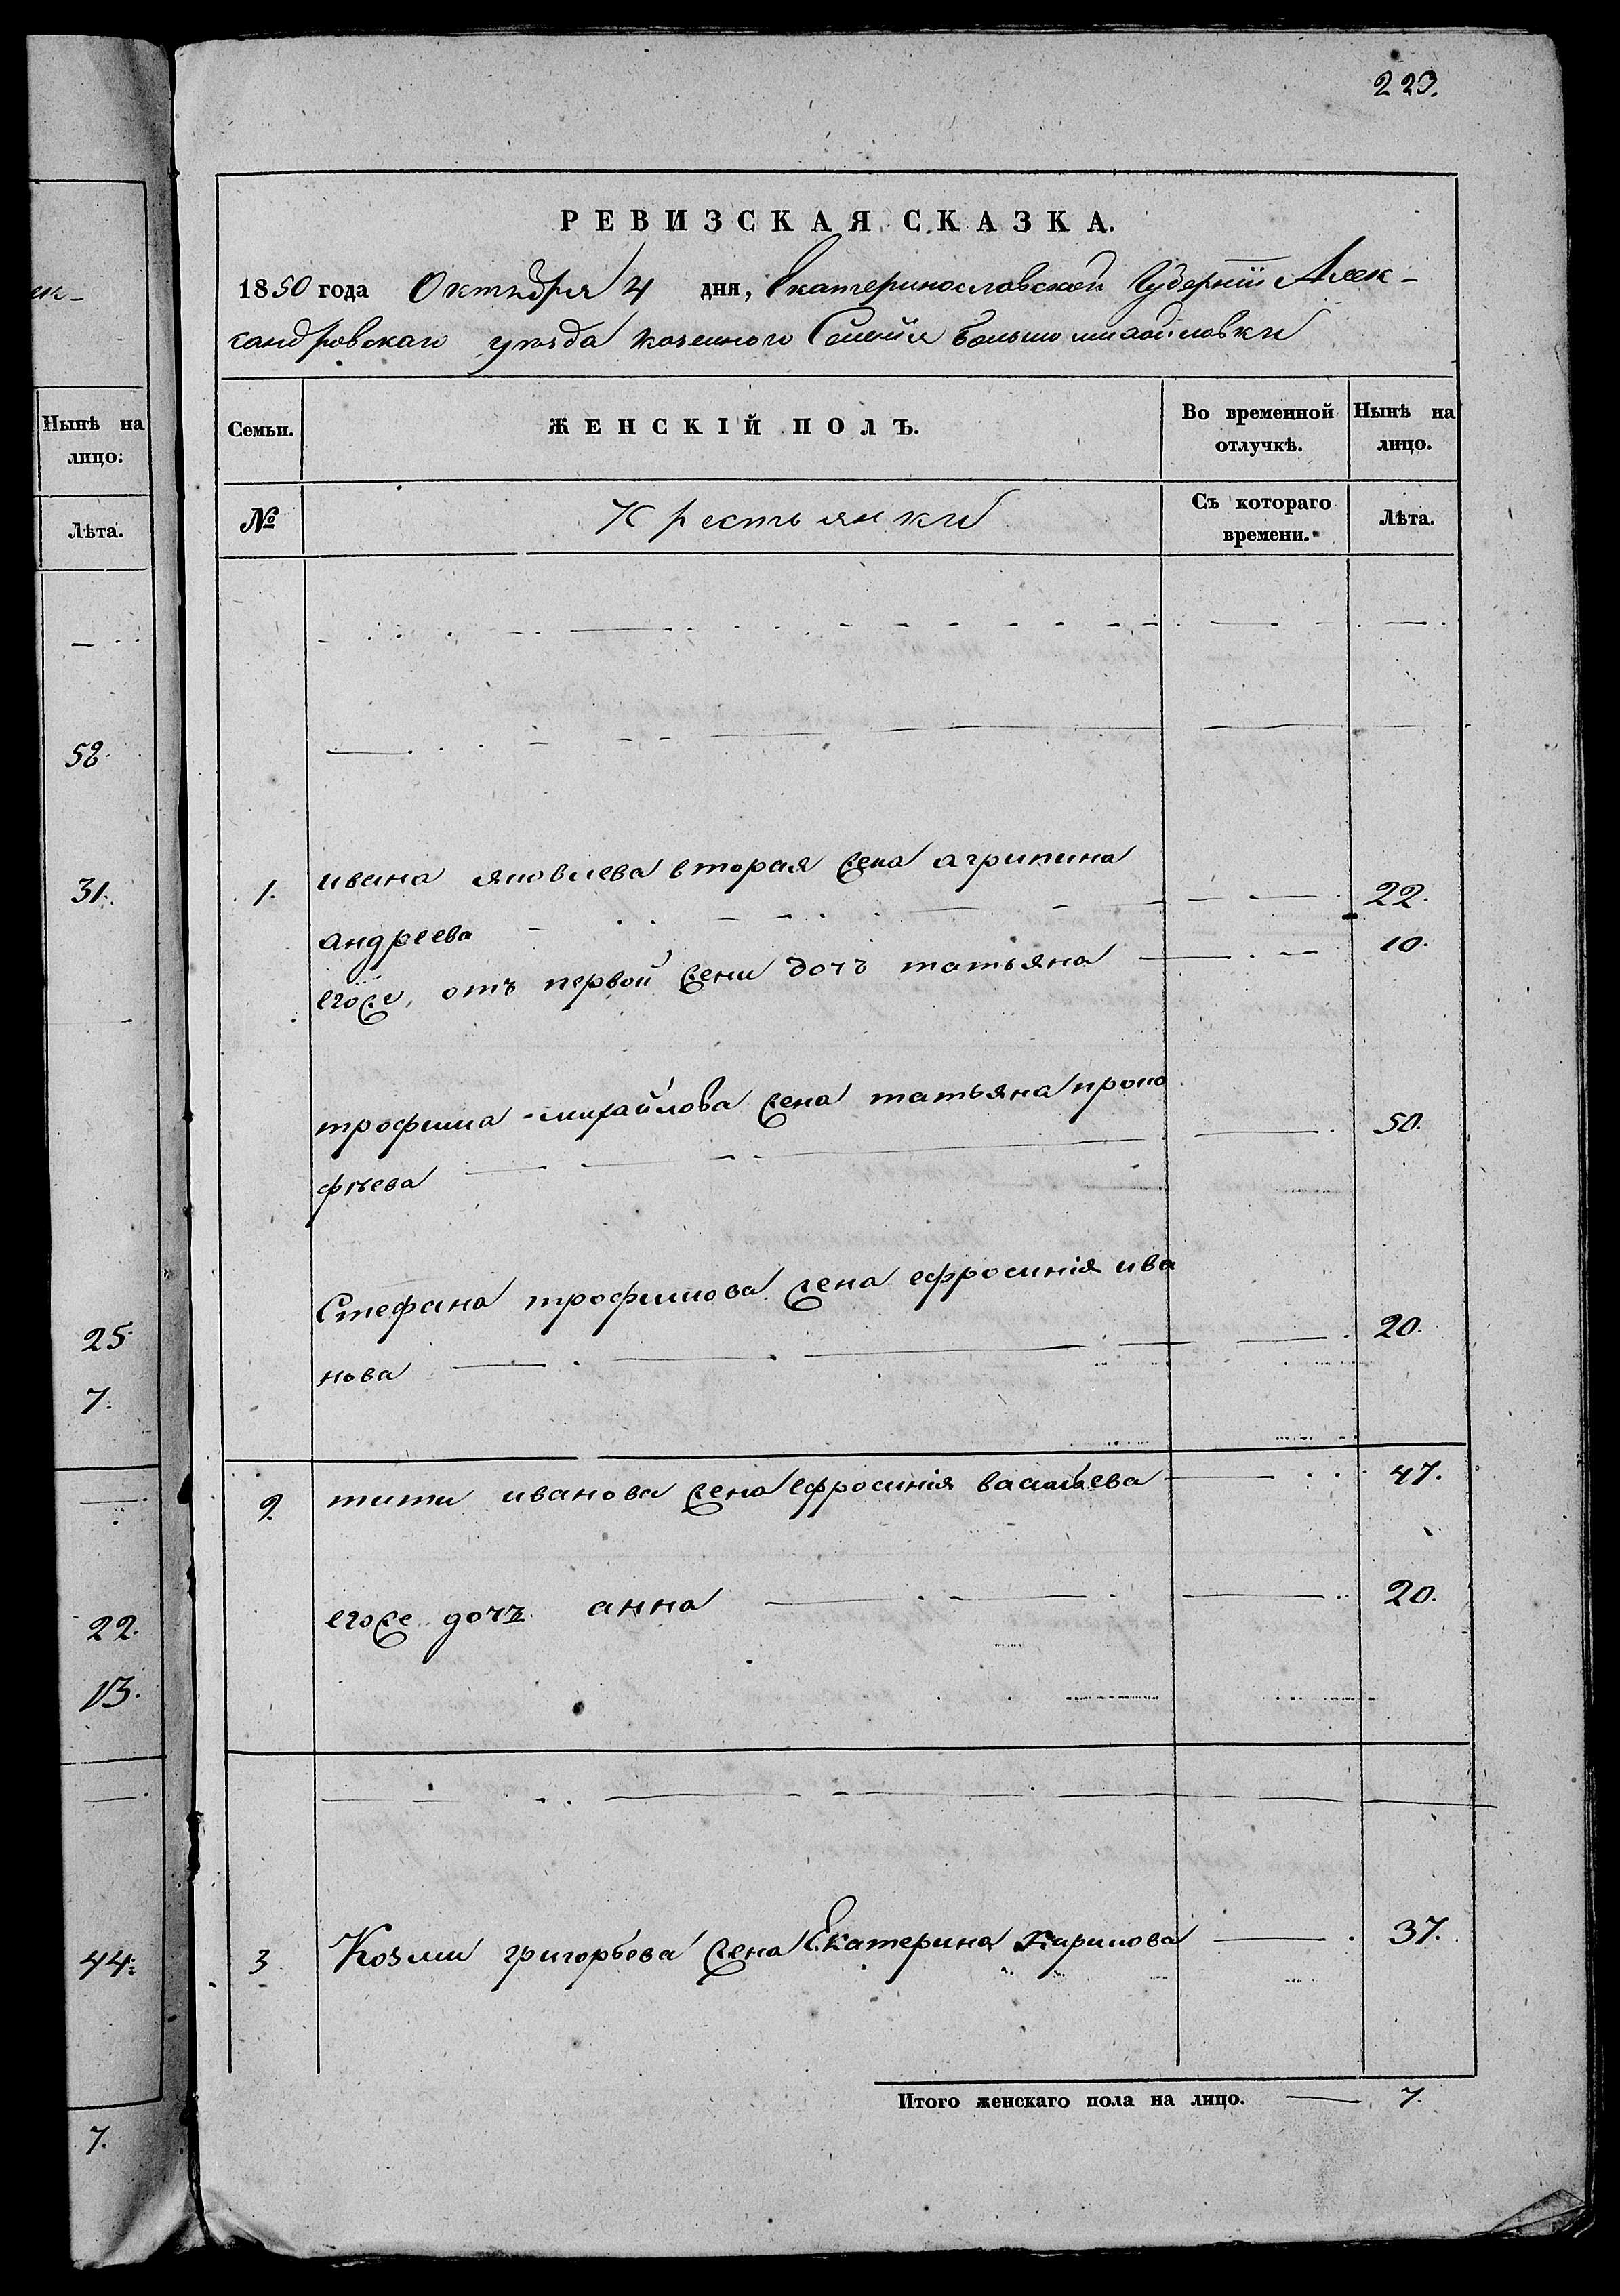 223.
РЕВИЗСКАЯ СКАЗКА.
1850 года Октября 4 дня, Екатеринославской Губернии Алек-
сандровскаго уезда козенного Селения большомихайловки
Семьи. ЖЕНСКІЙ ПОЛЪ. Во временной отлучкѣ. Нынѣ на лицо.
№ Крестьянки Съ котораго времени. Лѣта.
1. ивана яковлева вторая жена агрипина
андреева 22.
егоже, отъ первой жени дочъ татьяна 10.
трофима михайлова жена татьяна проко
фъева 50.
Стефана трофимова жена ефросинія ива
нова 20.
2. тита иванова жена ефросинія васильева 47.
егоже дочъ анна 20.
3 Козми григорьева жена Екатерина кирилова 37.
Итого женскаго пола на лицо. 7.
ек-
Нынѣ на
лицо:
Лѣта.
52.
31.
25.
7.
22.
13.
44.
7.